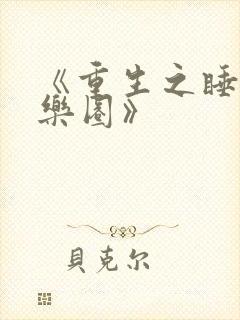 《重生之睡
樂園》
貝克尔